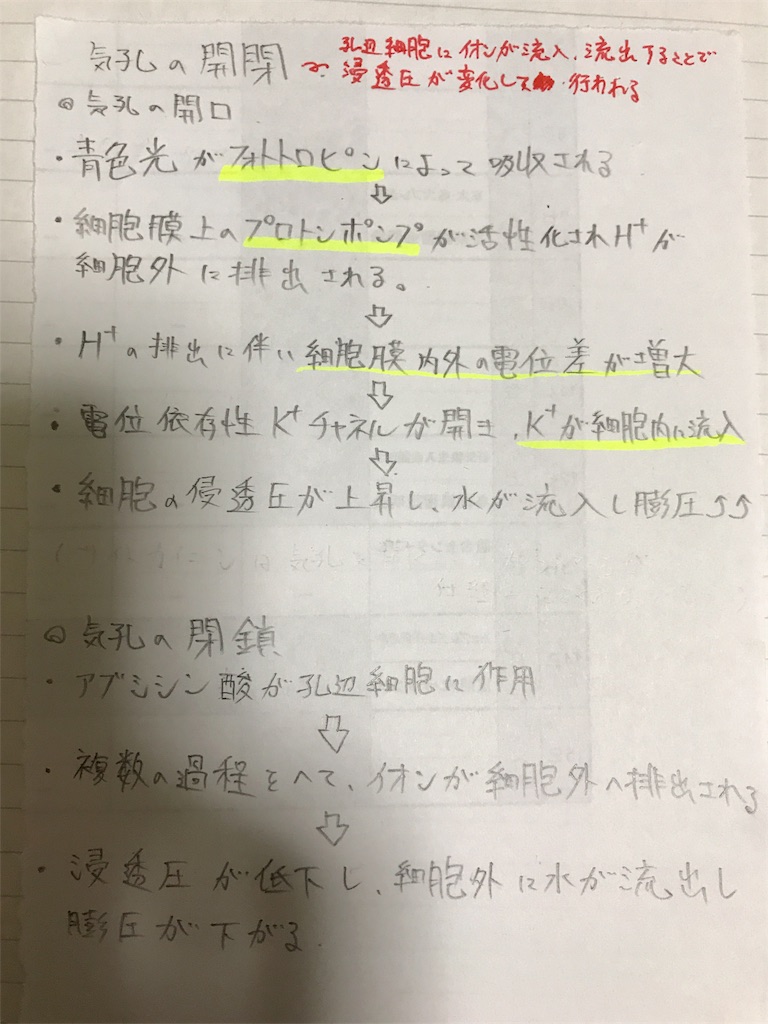 気孔の開閉
孔辺細胞にイオンが流入、流出することで
浸透圧が変化して行われる
◎気孔の開口
・青色光がフォトトロピンによって吸収される
⇩
・細胞膜上のプロトンポンプが活性化されH⁺が
細胞外に排出される。
⇩
・H⁺の排出に伴い細胞膜内外の電位差が増大
⇩
・電位依存性K⁺チャネルが開き、K⁺が細胞内に流入
⇩
・細胞の浸透圧が上昇し、水が流入し膨圧↑↑
◎気孔の閉鎖
・アブシシン酸が孔辺細胞に作用
⇩
・複数の過程をへて、イオンが細胞外へ排出される
⇩
・浸透圧が低下し、細胞外に水が流出し
膨圧が下がる.